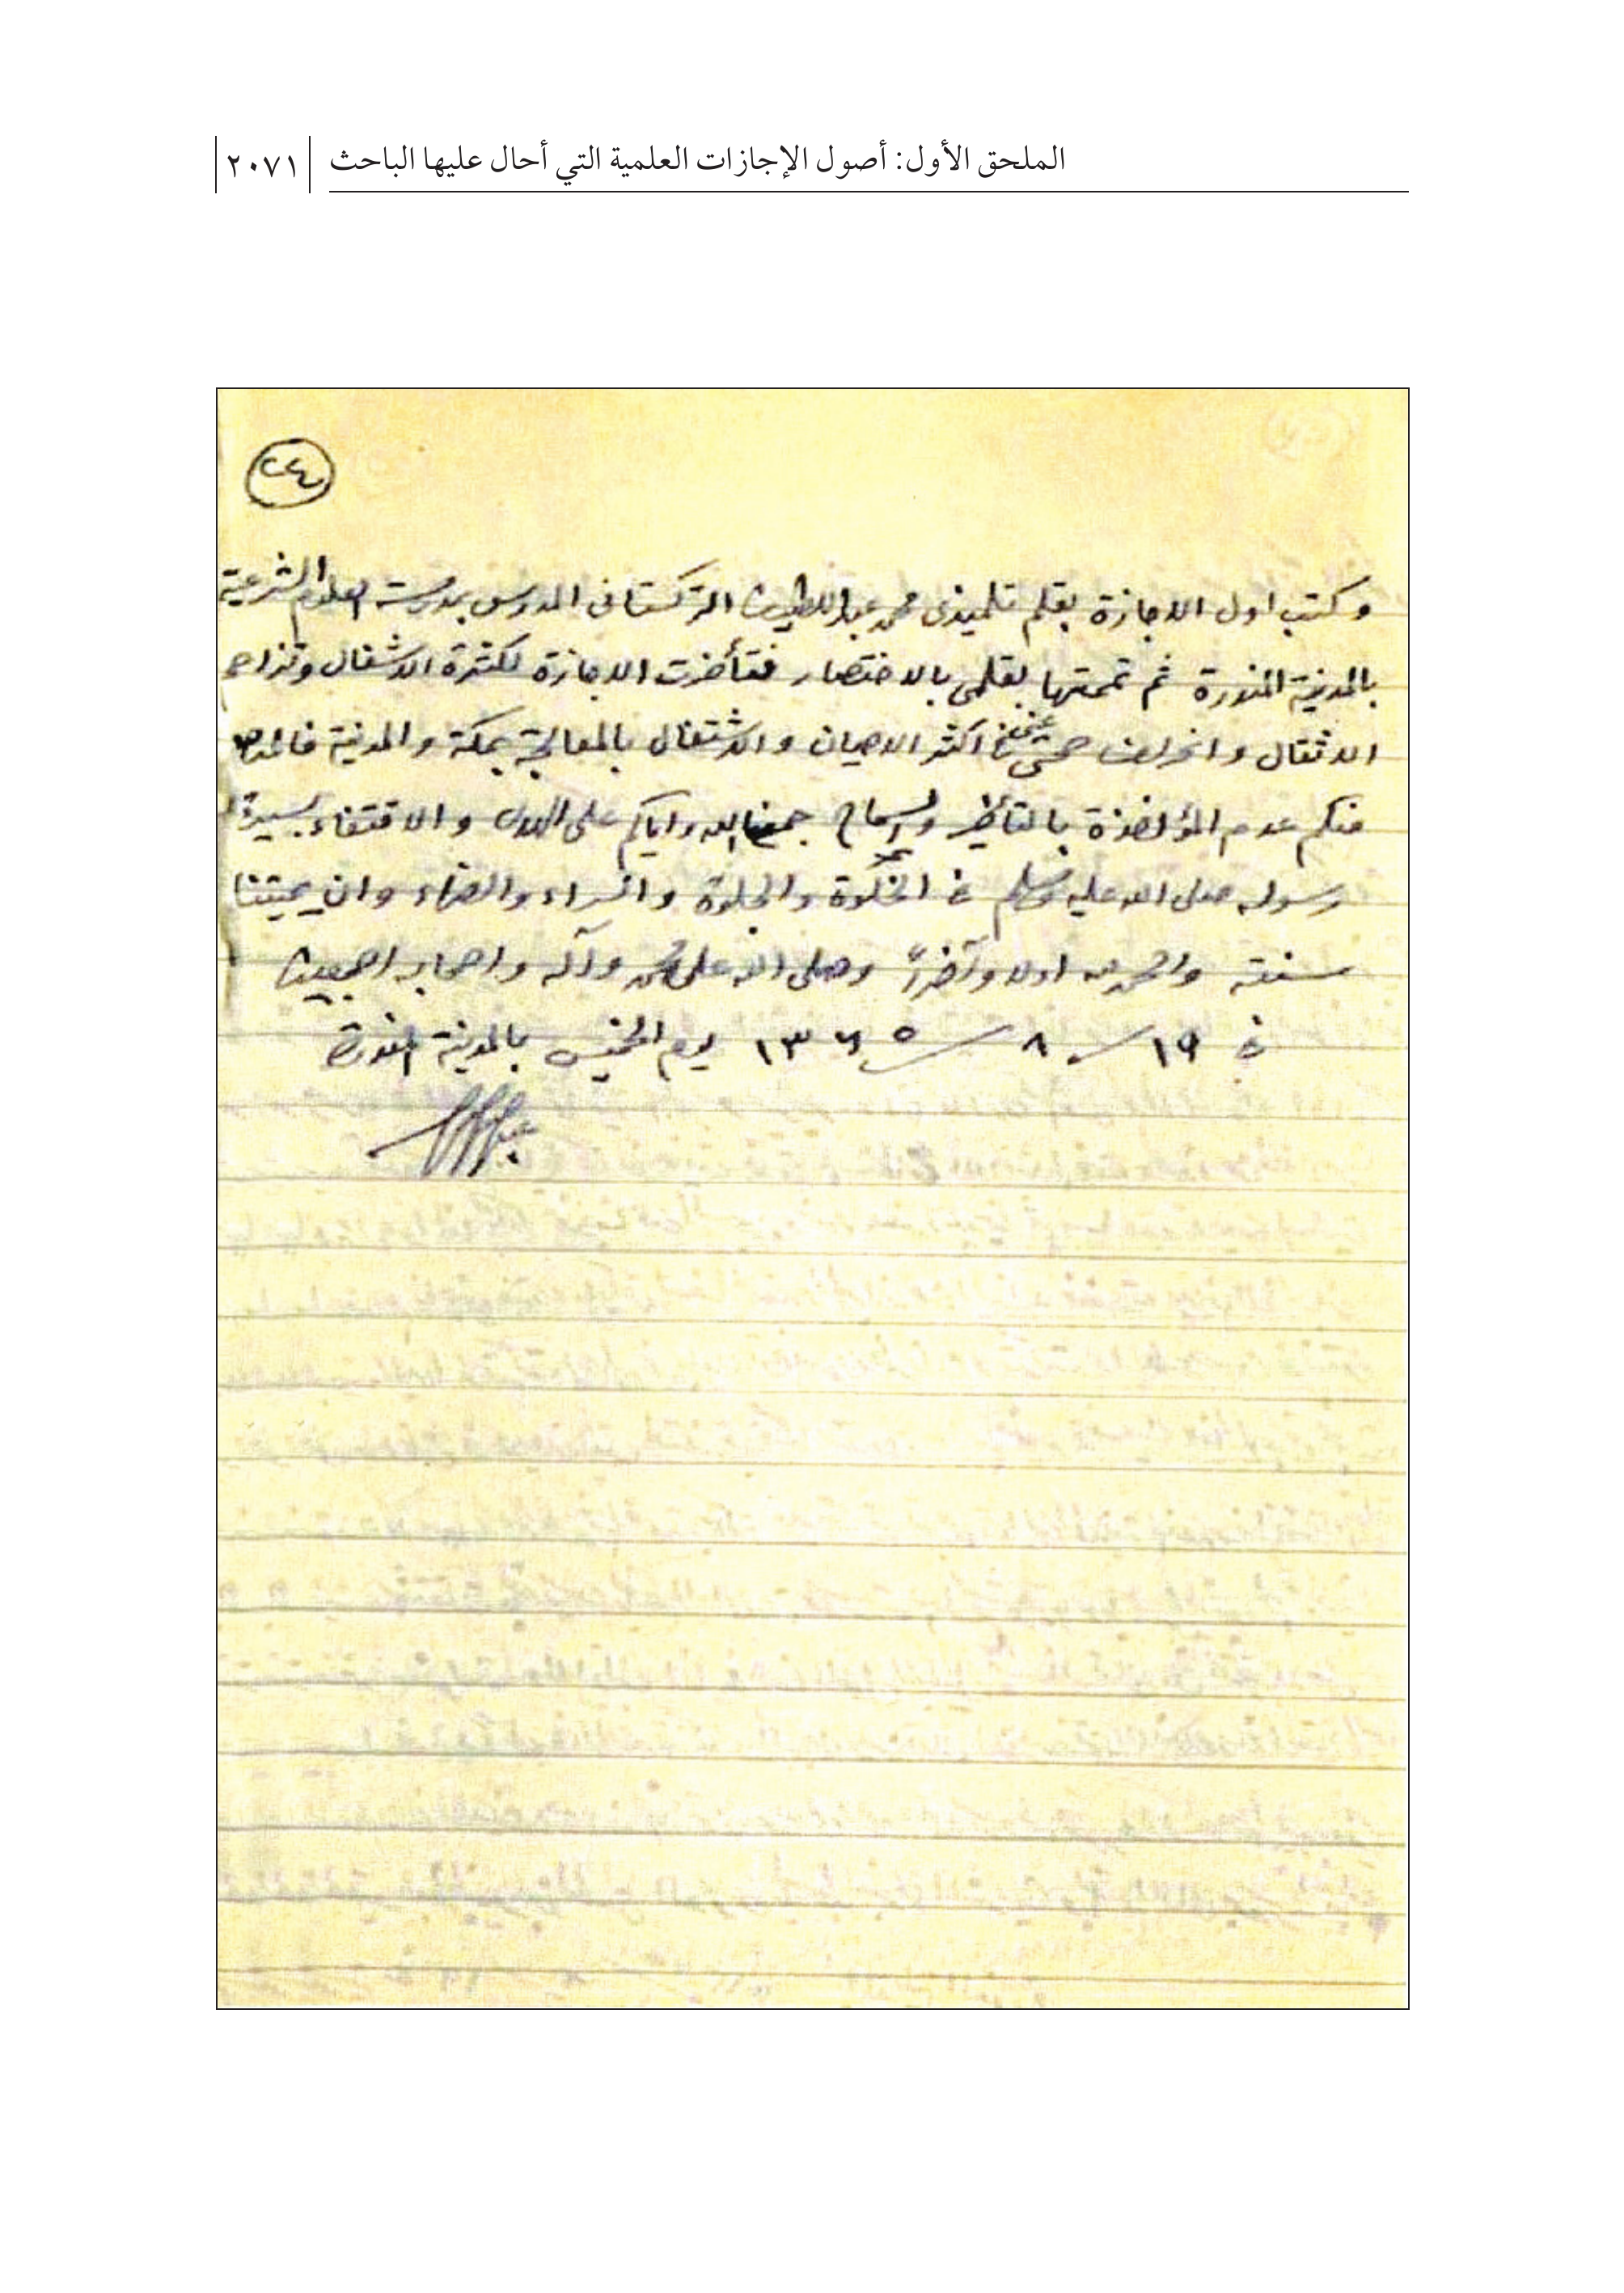 الملحق الأول: أصول الإجازات العلمية التي أحال عليها الباحث ٢٠٧١
٢٤
وكتب اول الاجازة بقلم تلميذى محمد عبد اللطيف التركستانى المدرس بمدرسة العلوم الشرعية
بالمدينة المنورة ثم تممتها بقلمى بالاختصار فتأخرت الاجازة لكثرة الاشغال وتزاحم
الاثقال وانحراف صحتى فى اكثر الاحيان والاشتغال بالمعالجة بمكة والمدينة فالمرجو
منكم عدم المؤاخذة بالتأخير والسماح جمعنا الله واياكم على الهدى والاقتفاء بسيرة
رسوله صلى الله عليه وسلم فى الخلوة والجلوة والسراء والضراء وان يميتنا
سنته والحمد لله اولا وآخراً وصلى الله على محمد وآله واصحابه اجمعين
فى ١٩ / ٨ / ١٣٦٥ يوم الخميس بالمدينة المنورة